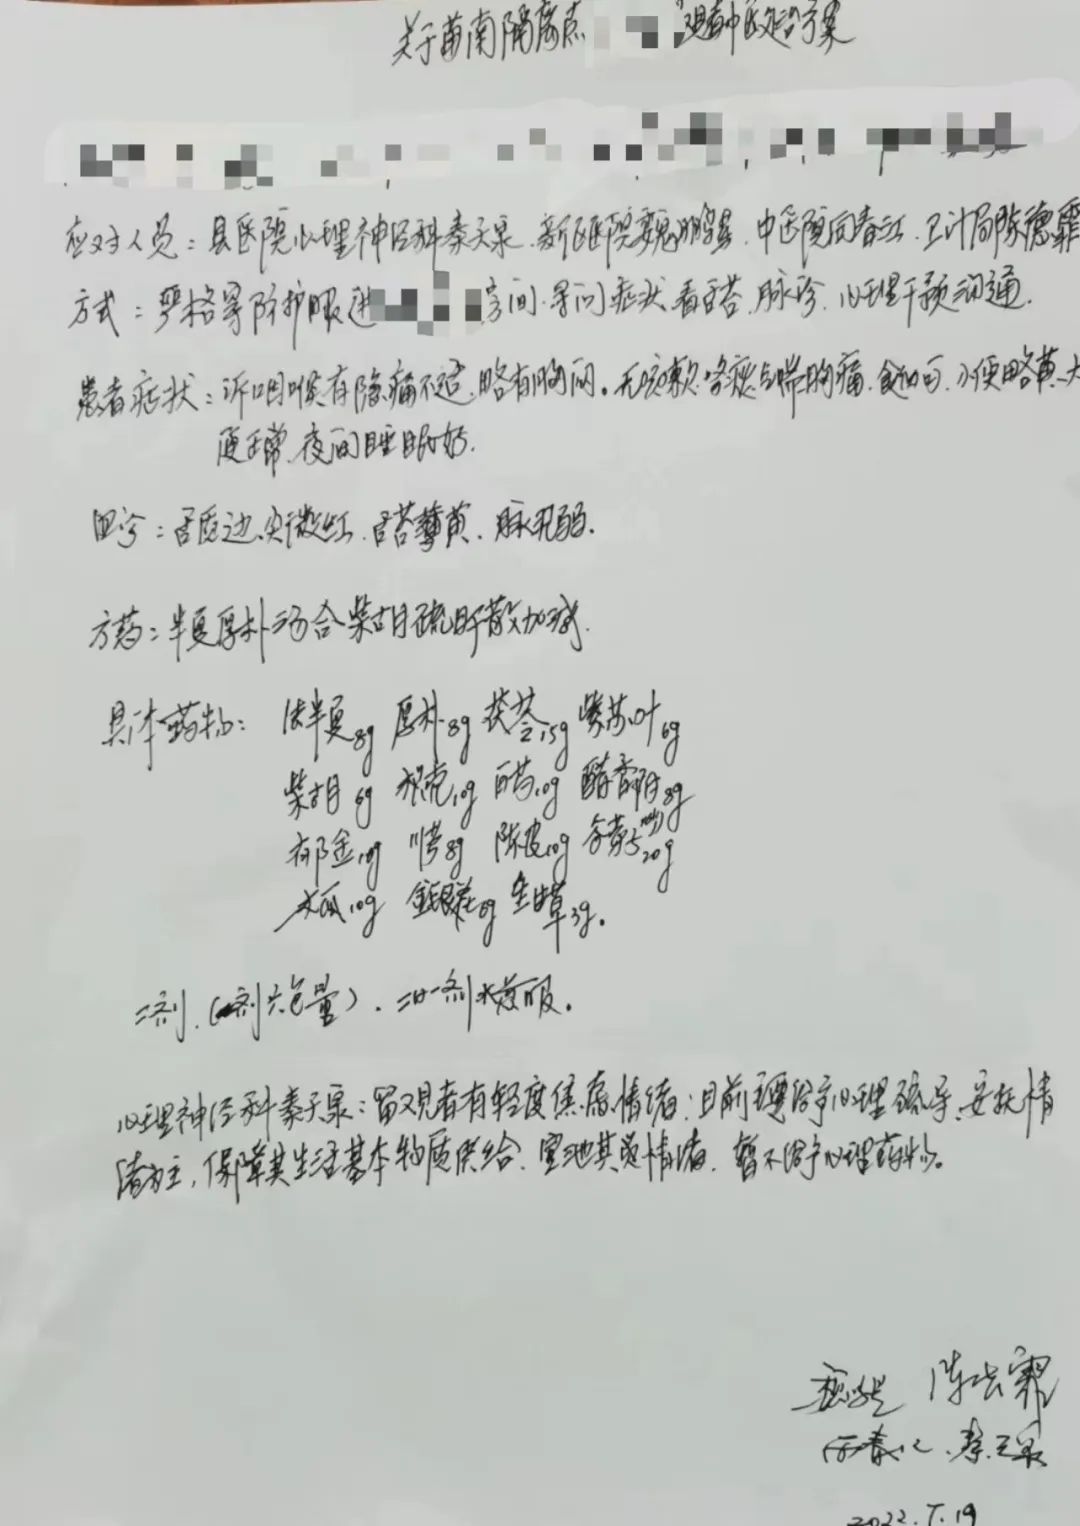 关于苗南隔离点 观者中医处治方案
应对人员：县医院心理神经科秦天泉、新区医院魏鹏昙、中医院向春江、卫计局陈德霏
方式：严格穿防护服进 房间、寻问症状、看舌苔、脉诊、心理干预沟通.
患者症状：诉咽喉有隐痛不适、略有胸闷。无咳嗽、咯痰气喘胸痛、食纳可、小便略黄、大
便正常、夜间睡眠好.
四诊：舌质边、尖微红、舌苔薄黄、脉沉弱.
方药：半夏厚朴汤合柴胡疏肝散加减.
具体药物： 法半夏8g 厚朴8g 茯苓15g 紫苏叶6g
柴胡6g 枳壳10g 白芍10g 醋香附8g
郁金10g 川芎8g 陈皮10g 20g
木瓜10g 金银花8g 生甘草3g。
二剂、(一剂六包量)、二日一剂水煎服。
心理神经科秦天泉：留观者有轻度焦虑情绪；目前主要给予心理疏导、安抚情
绪为主，保障其生活基本物质供给、 其 情绪、暂不给予心理药物。
陈德霏
向春江、秦天泉
2022.7.19